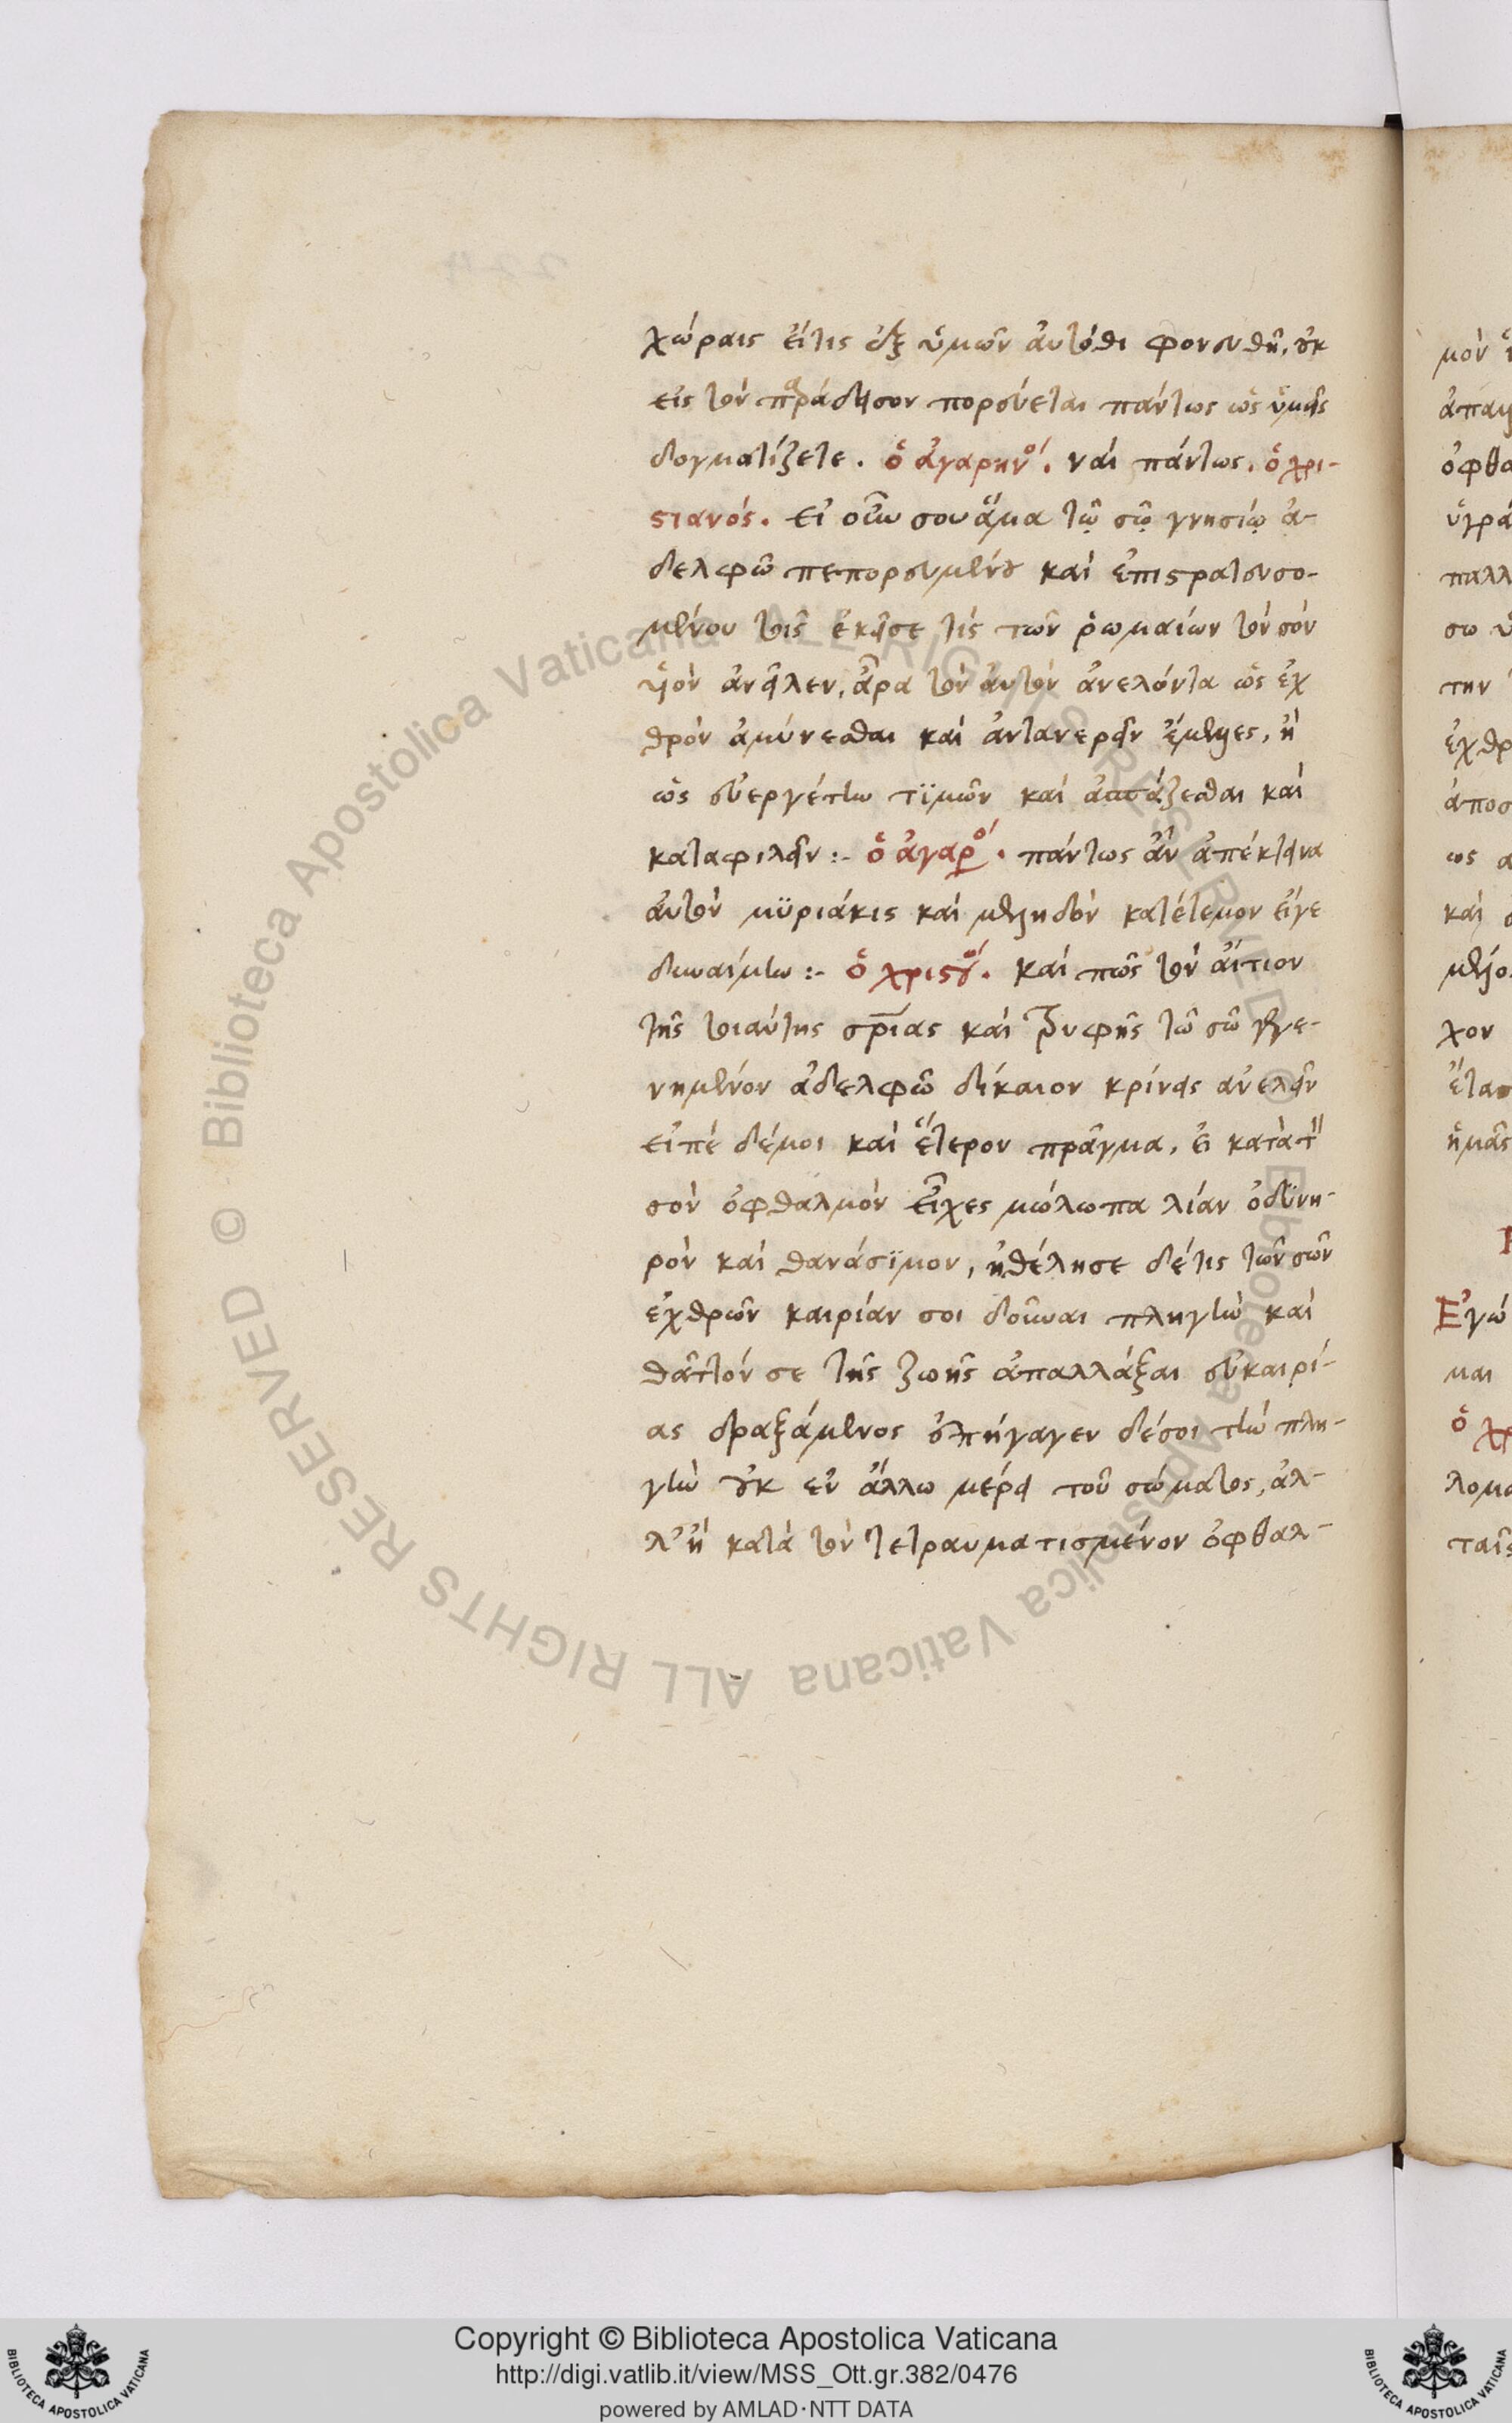 χώραις εἴτις ἐξ ὑμῶν αὐτόθι φονευθῆ, οὐκ
εἰς τὸν παράδεισον πορεύεται πάντως ὡς ὑμεῖς
δογματίζετε. ὁ ἀγαρηνό. ναὶ πάντως. ὁ χρι-
στιανός. εἰ οὖν σου ἅμα τῷ σῷ γνησίῳ ἀ-
δελφῶ πεπορευμένου καὶ ἐπιστρατευσο-
μένου τοῖς ἐκεῖσε τίς τῶν ῥωμαίων τὸν σὸν
υἱὸν ἀνεῖλεν, ἆρα τὸν αὐτὸν ἀνελόντα ὡς ἐχ
θρὸν ἀμύνεσθαι καὶ ἀνταναιρεῖν ἔμελλες, ἢ
ὡς εὐεργέτην τϊμῶν καὶ ἀσπάζεσθαι καὶ
καταφιλεῖν :- ὁ ἀγαρο. πάντως ἂν ἀπέκτεινα
αὐτὸν μϋριάκις καὶ μεληδὸν κατέτεμον εἴγε
δυναίμην :- ὁ χριστο. καὶ πῶς τὸν αἴτιον
τῆς τοιαύτης σρίας καὶ τρυφῆς τῶ σῶ γεγε-
νημένον ἀδελφῶ δίκαιον κρίνεις ἀνελεῖν
εἰπὲ δέμοι καὶ ἕτερον πρᾶγμα, εἰ κατὰ τ
σὸν ὀφθαλμὸν εἶχες μώλωπα λίαν ὀδϋνη-
ρὸν καὶ θανάσϊμον, ἠθέλησε δέτις τῶν σῶν
ἐχθρῶν καιρίαν σοι δοῦναι πληγὴν καὶ
θᾶττόν σε τῆς ζωῆς ἀπαλλάξαι εὐκαιρί-
ας δραξάμενος ἐπήγαγεν δέσοι τὴν πλη-
γὴν οὐκ ἐν ἄλλω μέρει τοῦ σώματος, ἀλ-
λ᾽ ἢ κατὰ τὸν τετραυματισμένον ὀφθαλ-
Copyright © Biblioteca Apostolica Vaticana
http://digi.vatlib.it/view/MSS_Ott.gr.382/0476
powered by AMLAD·NTT DATA